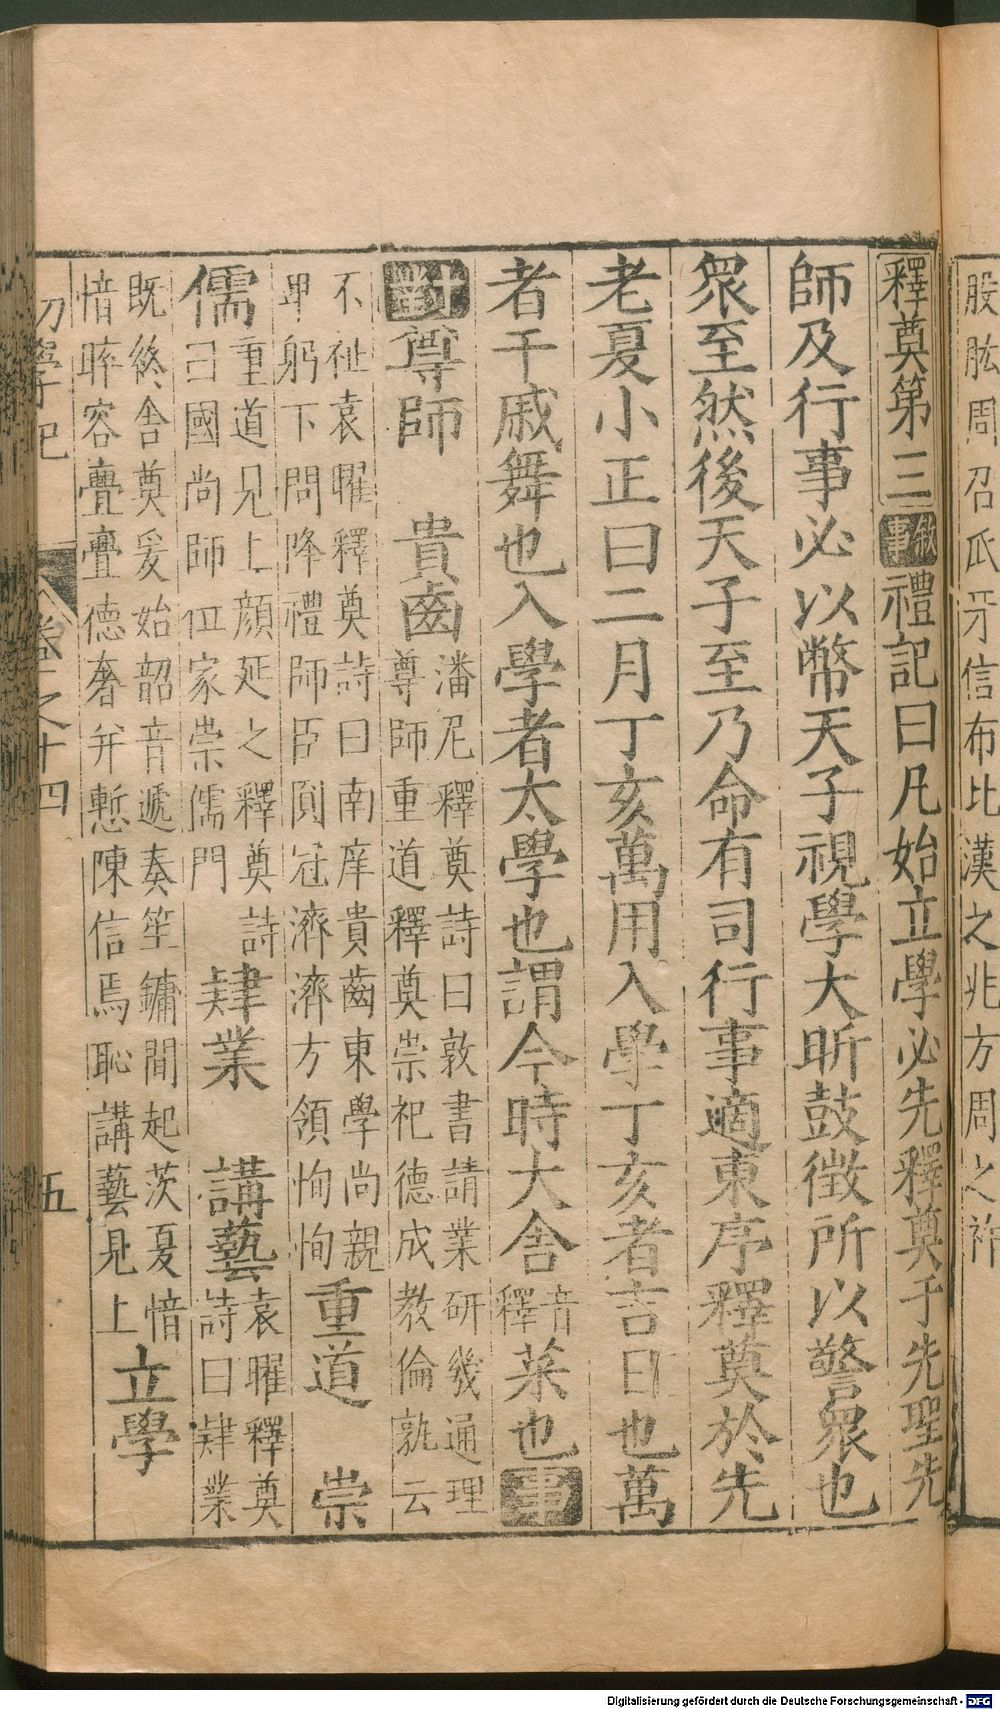 股肱周召爪牙信布比漢之兆方周之祚
釋奠第三敘事禮記曰凡始立學必先釋奠于先聖先
師及行事必以幣天子視學大昕鼓徵所以警衆也
衆至然後天子至乃命有司行事適東序釋奠於先
老夏小正曰二月丁亥萬用入學丁亥者吉日也萬
者干戚舞也入學者太學也謂今時大舍音釋菜也事
對尊師 貴齒潘尼釋奠詩曰敦書請業研幾通理
尊師重道釋奠崇祀德成教倫孰云
不祉袁曜釋奠詩曰南庠貴齒東學尚親
卑躬下問降禮師臣圓冠濟濟方領恂恂重道 崇
儒重道見上顔延之釋奠詩
曰國尚師位家崇儒門肄業 講藝袁曜釋奠
詩曰肄業
既終舍奠爰始韶音遞奏笙鏞間起茨夏愔
愔晬容亹亹德奢弁慙陳信焉恥講藝見上立學
初學記 卷之十四 五
Digitalisierung gefördert durch die Deutsche Forschungsgemeinschaft - DFG